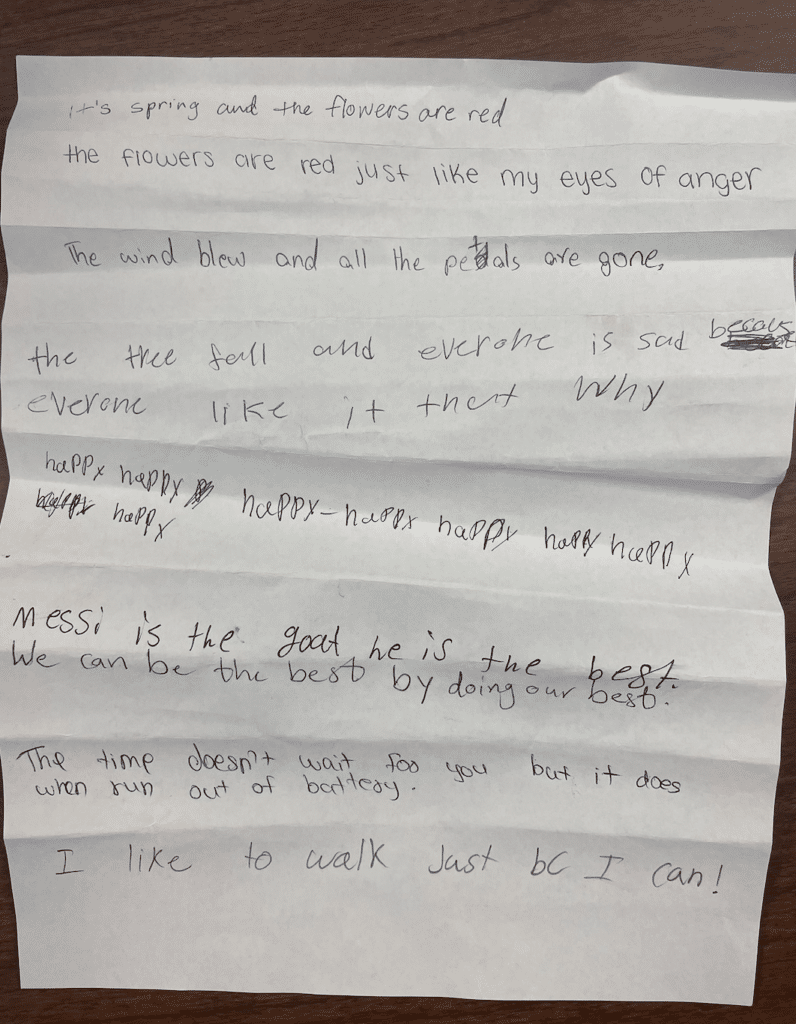 it's spring and the flowers are red
the flowers are red just like my eyes of anger
The wind blew and all the petals are gone,
the tree fall and everone is sad becaus
everone like it thert Why
happy happy
happy happy-happy happy happy happy
Messi is the goat he is the best.
We can be the best by doing our best.
The time doesn't wait foo you but it does
when run out of battery.
I like to walk Just bc I can!